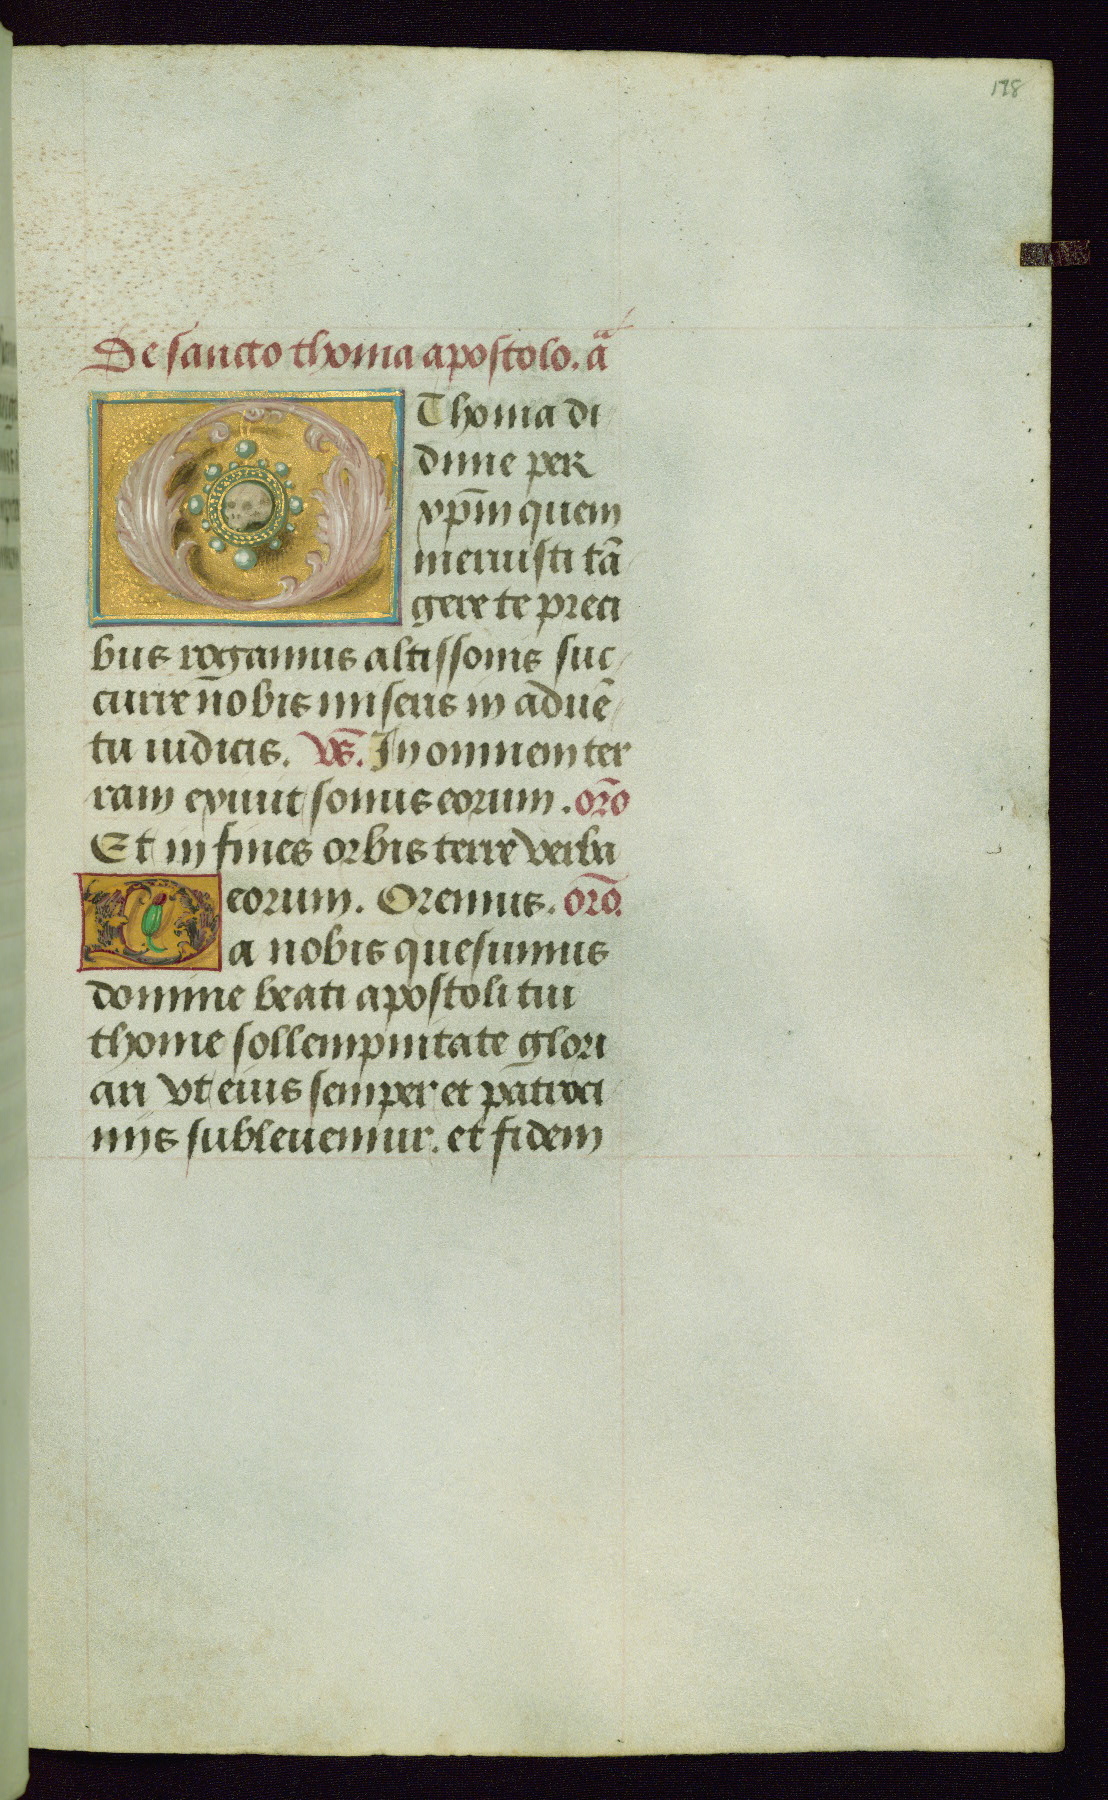 198
De sancto thoma apostolo. aᷓ
O Thoma di
dime per
xp̄m quem
meruisti tā
gere te preci
bus rogamus altissonis suc
curre nobis miseris in aduē
tu iudicis. Vs̄. In omnem ter
ram exiuit sonus eorum. orō
Et in fines orbis terre verba
eorum. Oremus. orō.
Da nobis quesumus
domine beati apostoli tui
thome sollempnitate glori
ari vt eius semper et patroci
nijs subleuemur. et fidem